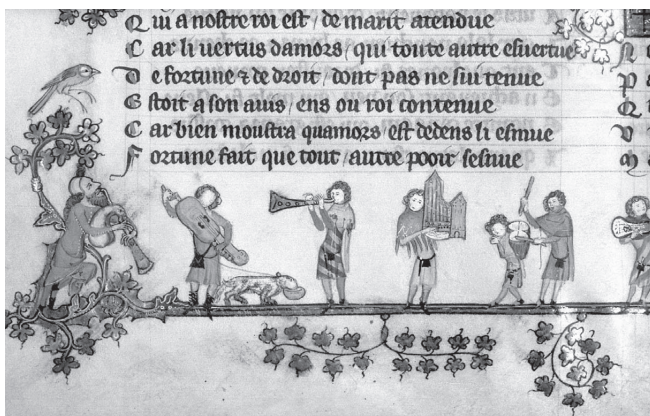 Q ui a nostre roi est / de marit atendue
C ar li uertus damors / qui toute autre esuertue
D e fortune & de droit / dont pas ne sui tenue
E stoit a son auis / ens ou roi contenue
C ar bien moustra quamors / est dedens li esmue
F ortune fait que tout / autre pooir
N
P
Q
V
M